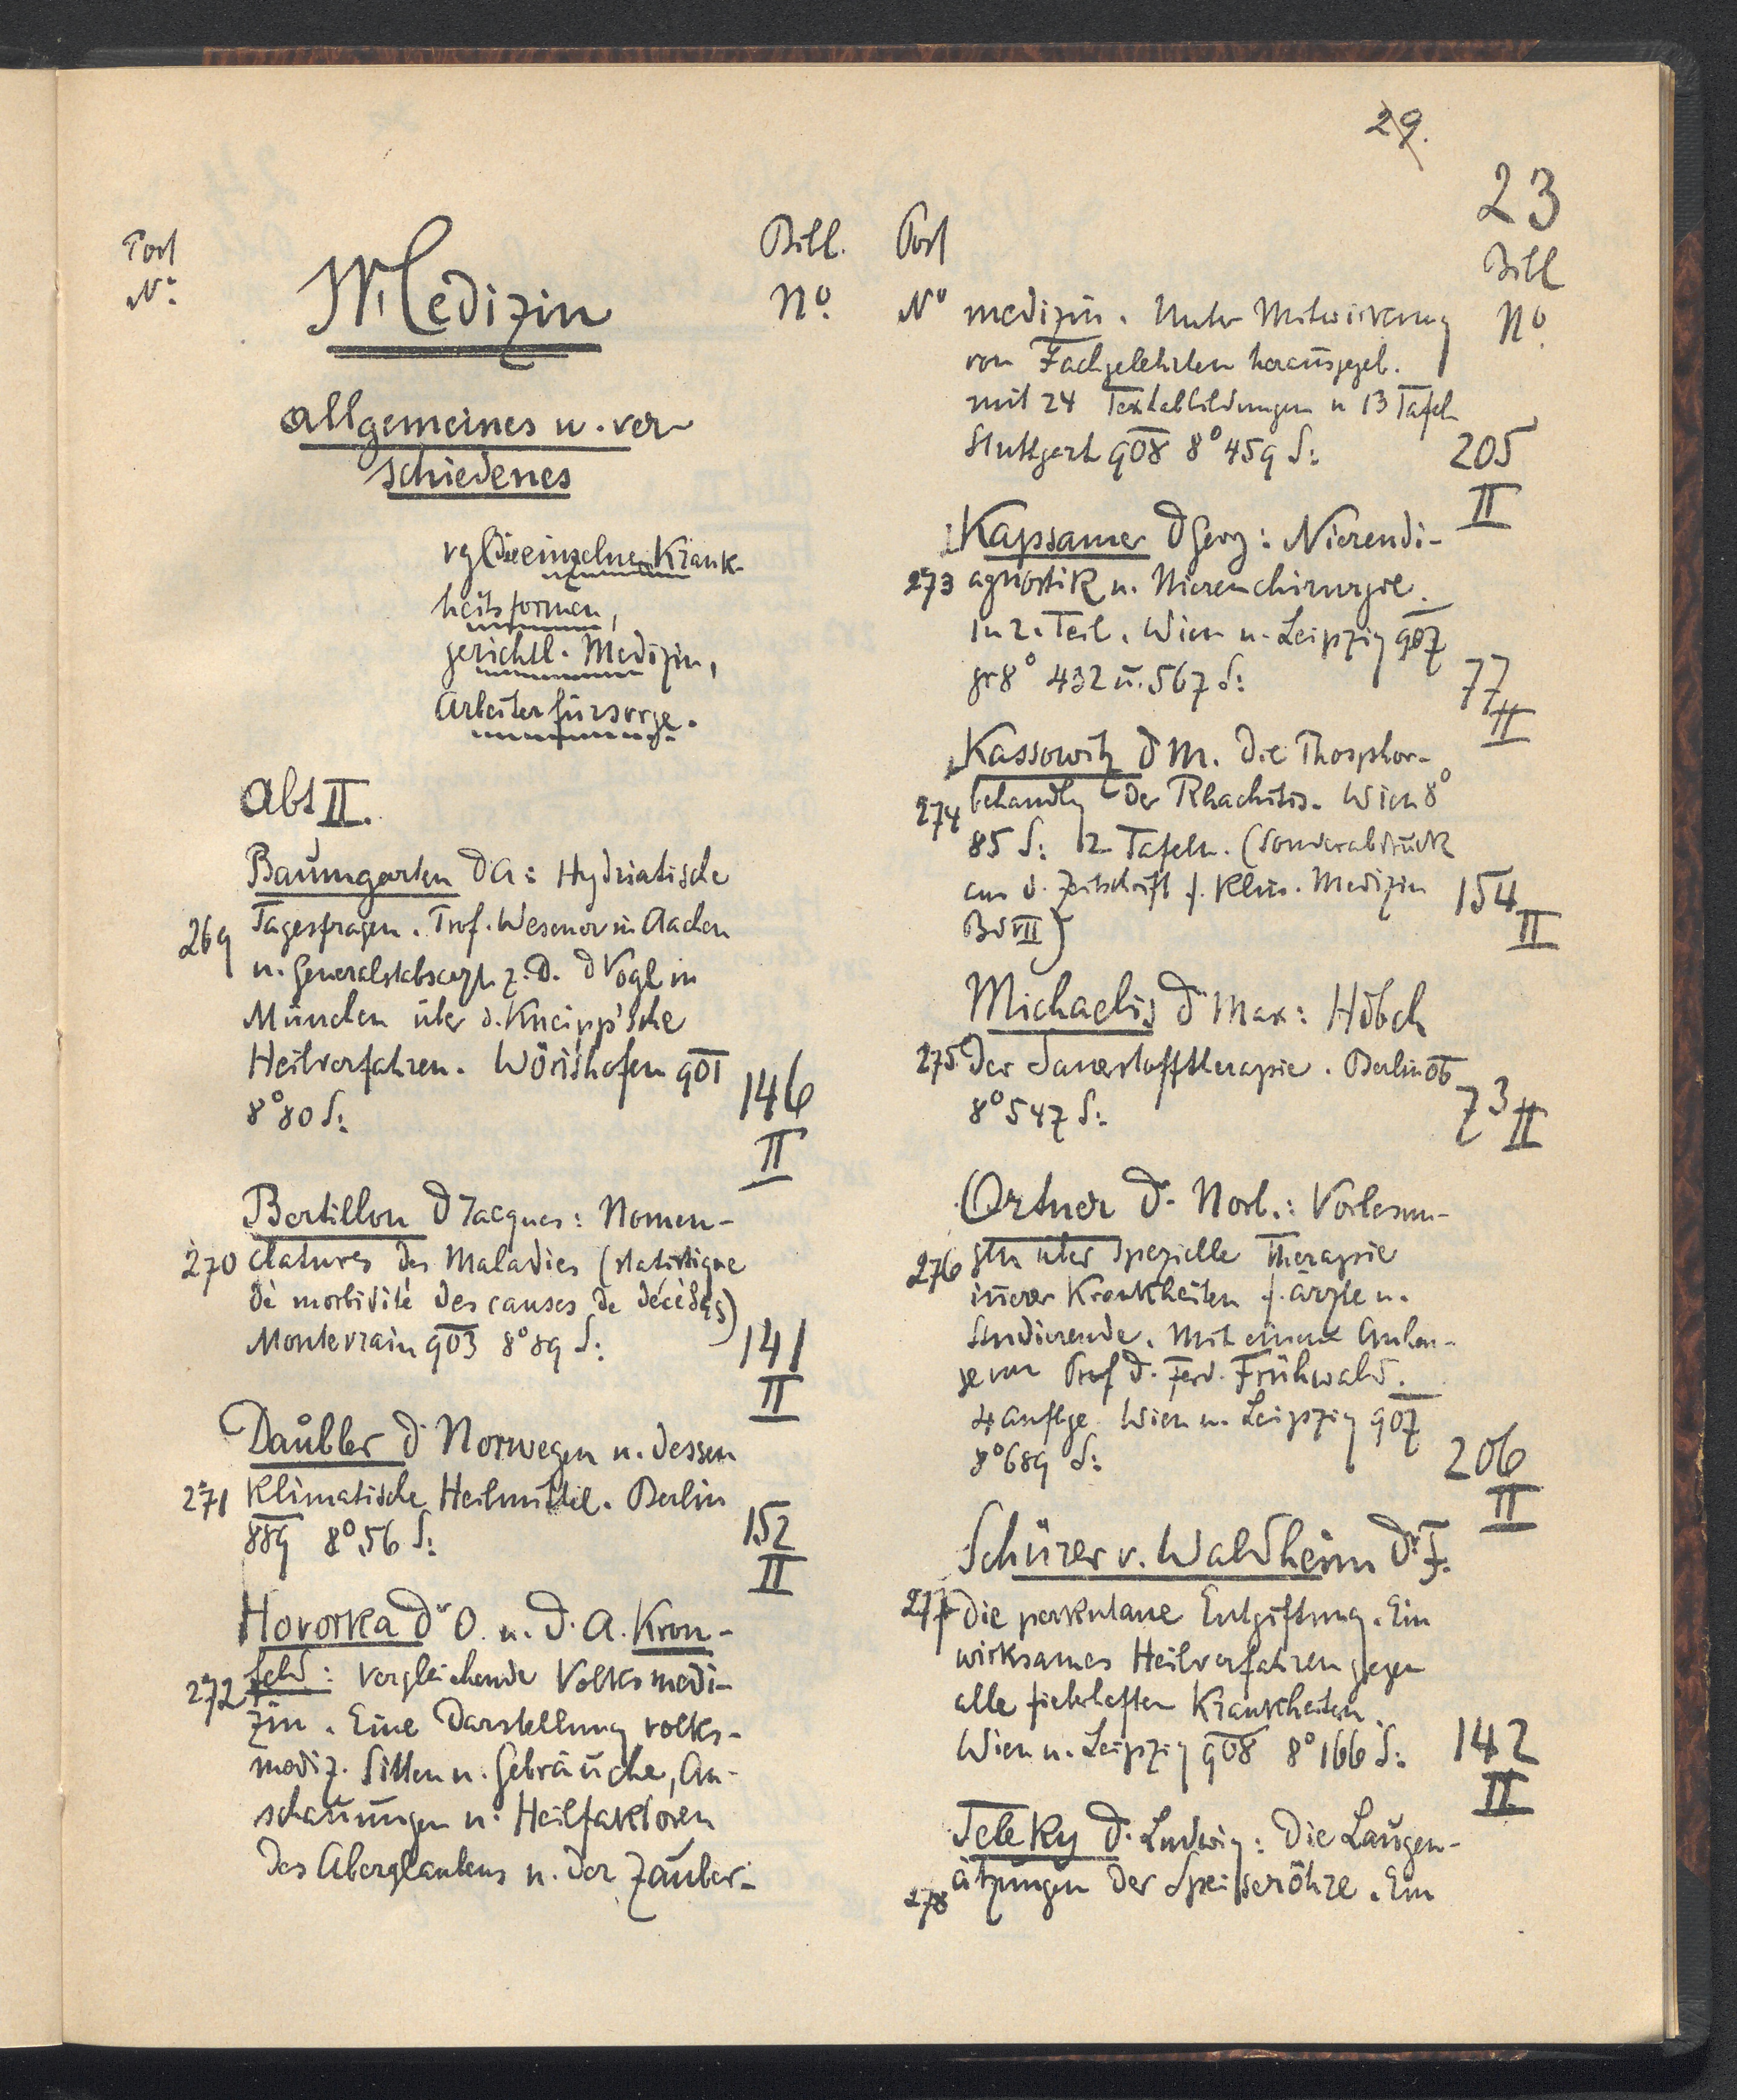 29.
23
Post
No.
Medizin
Bibl.
No.
Allgemeines u. ver-
schiedenes
vgl die einzelnen Krank-
heitsformen,
gerichtl. Medizin,
Arbeiterfürsorge.
Abt II.
Baumgarten D A: Hydriatische
269 Tagesfragen. Prof. Wesener in Aachen
u. Generalstabsarzt z. D. D Vogl in
München über d. Kneipp'sche
Heilverfahren. Wörishofen 901
8° 80 S:
146
II
Bertillon D Jacques: Nomen-
270 clatures des Maladies (statistique
de morbidité des causes de décèdes)
Montevrain 903 8° 89 S:
141
II
Däubler D Norwegen u. dessen
271 klimatische Heilmittel. Berlin
889 8° 56 S:
152
II
Hovorka Dr O. u. D. A. Kron-
272 feld: Vergleichende Volksmedi-
zin. Eine Darstellung volks-
mediz. Sitten u. Gebräuche, An-
schauungen u. Heilfaktoren
des Aberglaubens u. der Zauber-
Post
No
Bibl
No.
medizin. Unter Mitwirkung
von Fachgelehrten herausgegeb.
mit 24 Textabbildungen u 13 Tafeln
Stuttgart 908 8° 459 S:
205
II
Kapsamer D Georg: Nierendi-
273 agnostik u. Nierenchirurgie.
In 2. Teil. Wien u. Leipzig 907
gr 8° 432 u. 567 S:
77
II
Kassowitz D M. Die Phosphor-
274 behandlg der Rhachitis. Wien 8°
85 S: 2 Tafeln. (Sonderabdruck
aus d. Zeitschrift f. klin. Medizin
Bd VII)
154
II
Michaelis D Max: Hdbch
275 der Sauerstofftherapie. Berlin 06
8° 547 S:
73
II
Ortner D. Norb.: Vorlesun-
276 gen über spezielle Therapie
innerer Krankheiten f. Ärzte u.
Studierende. Mit einem Anhan-
ge von Prof D. Ferd. Frühwald.
4 Auflge. Wien u. Leipzig 907
8° 689 S:
206
II
Schürer v. Waldheim Dr F.
277 Die perkutane Entgiftung. Ein
wirksames Heilverfahren gegen
alle fieberhaften Krankheiten.
Wien u. Leipzig 908 8° 166 S:
142
II
Teleky D. Ludwig: Die Laugen-
278 ätzungen der Speiseröhre. Ein